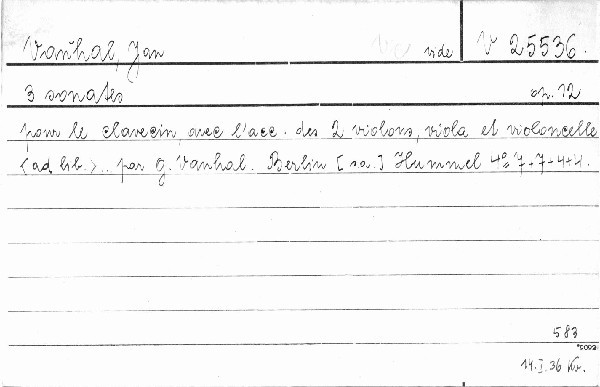 Vaňhal, Jan vide V 25536.
3 sonates op. 12
pour le clavecin avec l'acc. des 2 violons, viola et violoncelle
(ad lib.).. par G. Vanhal. Berlin [s.a.] Hummel 4º 7+7+4+4.
583
14.I.36 Kr.